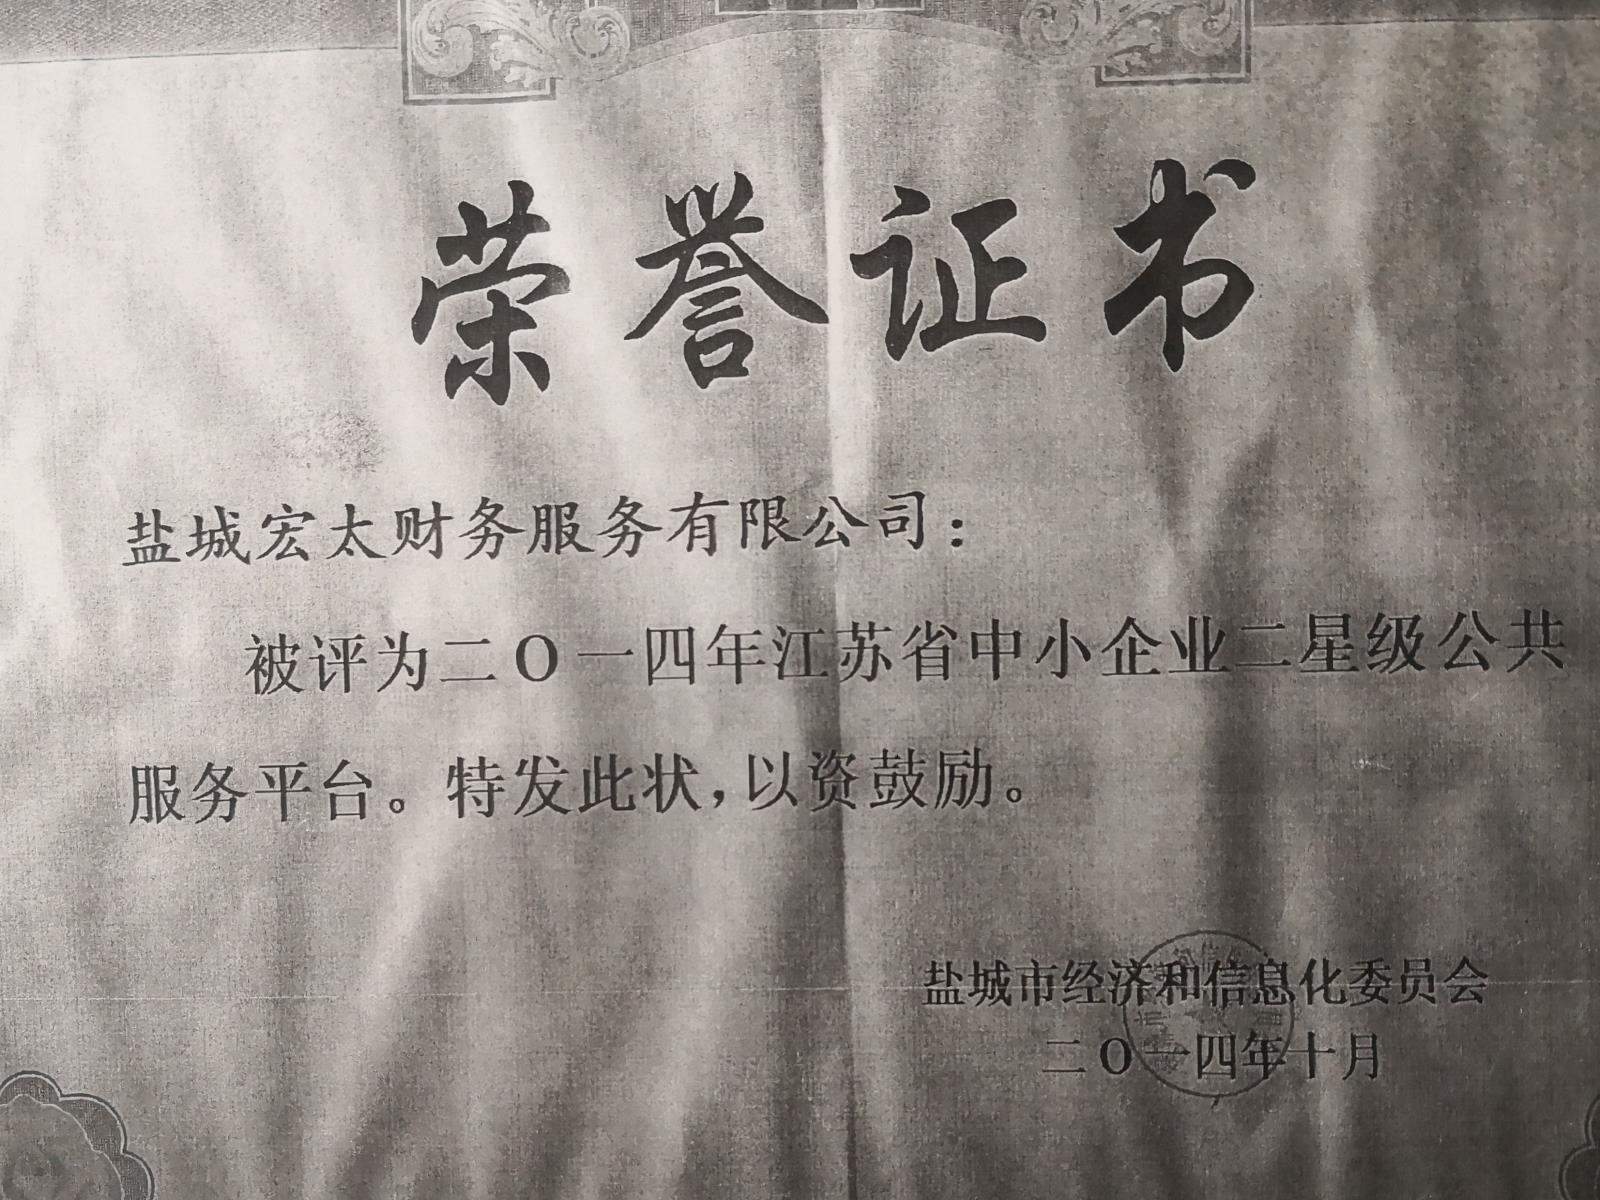 荣誉证书
盐城宏太财务服务有限公司：
被评为二O一四年江苏省中小企业二星级公共
服务平台。特发此状，以资鼓励。
盐城市经济和信息化委员会
二O一四年十月